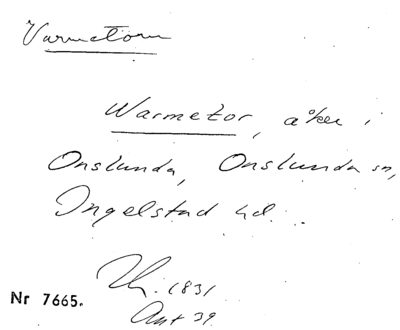 Varmetorn
Warmetor, åker i
Onslunda, Onslunda sn,
Ingelstad hd.
1831
Nr 7665.
Ant 39